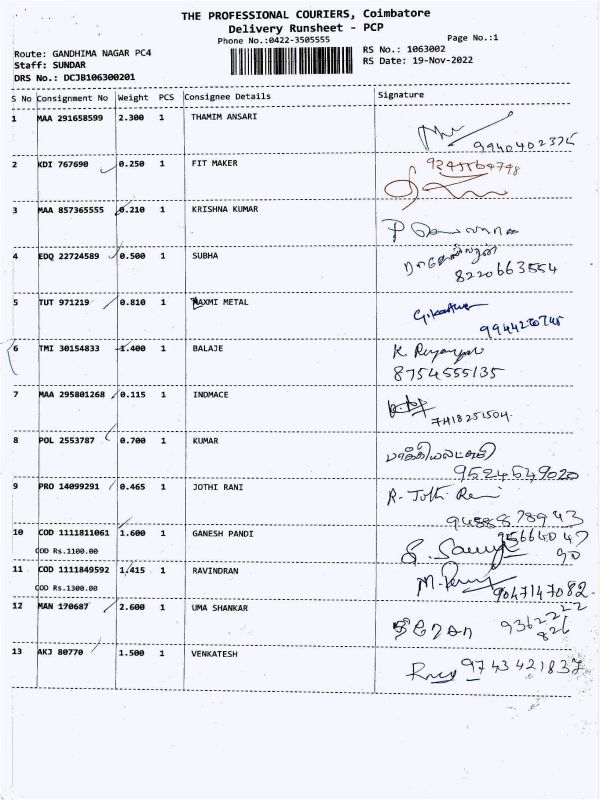 THE PROFESSIONAL COURIERS, Coimbatore
Delivery Runsheet - PCP
Phone No.:0422-3505555
Page No.:1
Route: GANDHIMA NAGAR PC4
RS No.: 1063002
Staff: SUNDAR
RS Date: 19-Nov-2022
DRS No.: DCJB106300201
S No Consignment No Weight PCS Consignee Details Signature
1 MAA 291658599 2.300 1 THAMIM ANSARI
9940402375
2 KDI 767690 0.250 1 FIT MAKER
3 MAA 857365555 0.210 1 KRISHNA KUMAR
4 EDQ 22724589 0.500 1 SUBHA
8220663554
5 TUT 971219 0.810 1 LAXMI METAL
6 TMI 30154833 1.400 1 BALAJE
8754555135
7 MAA 295801268 0.115 1 INDMACE
7418251504
8 POL 2553787 0.700 1 KUMAR
9524649020
9 PRO 14099291 0.465 1 JOTHI RANI R. Jothi Rani
9488878943
10 COD 1111811061 1.600 1 GANESH PANDI
COD Rs.1100.00
11 COD 1111849592 1.415 1 RAVINDRAN
9047147082
COD Rs.1300.00
12 MAN 170687 2.600 1 UMA SHANKAR
9362222
826
13 AKJ 80770 1.500 1 VENKATESH 9743421837